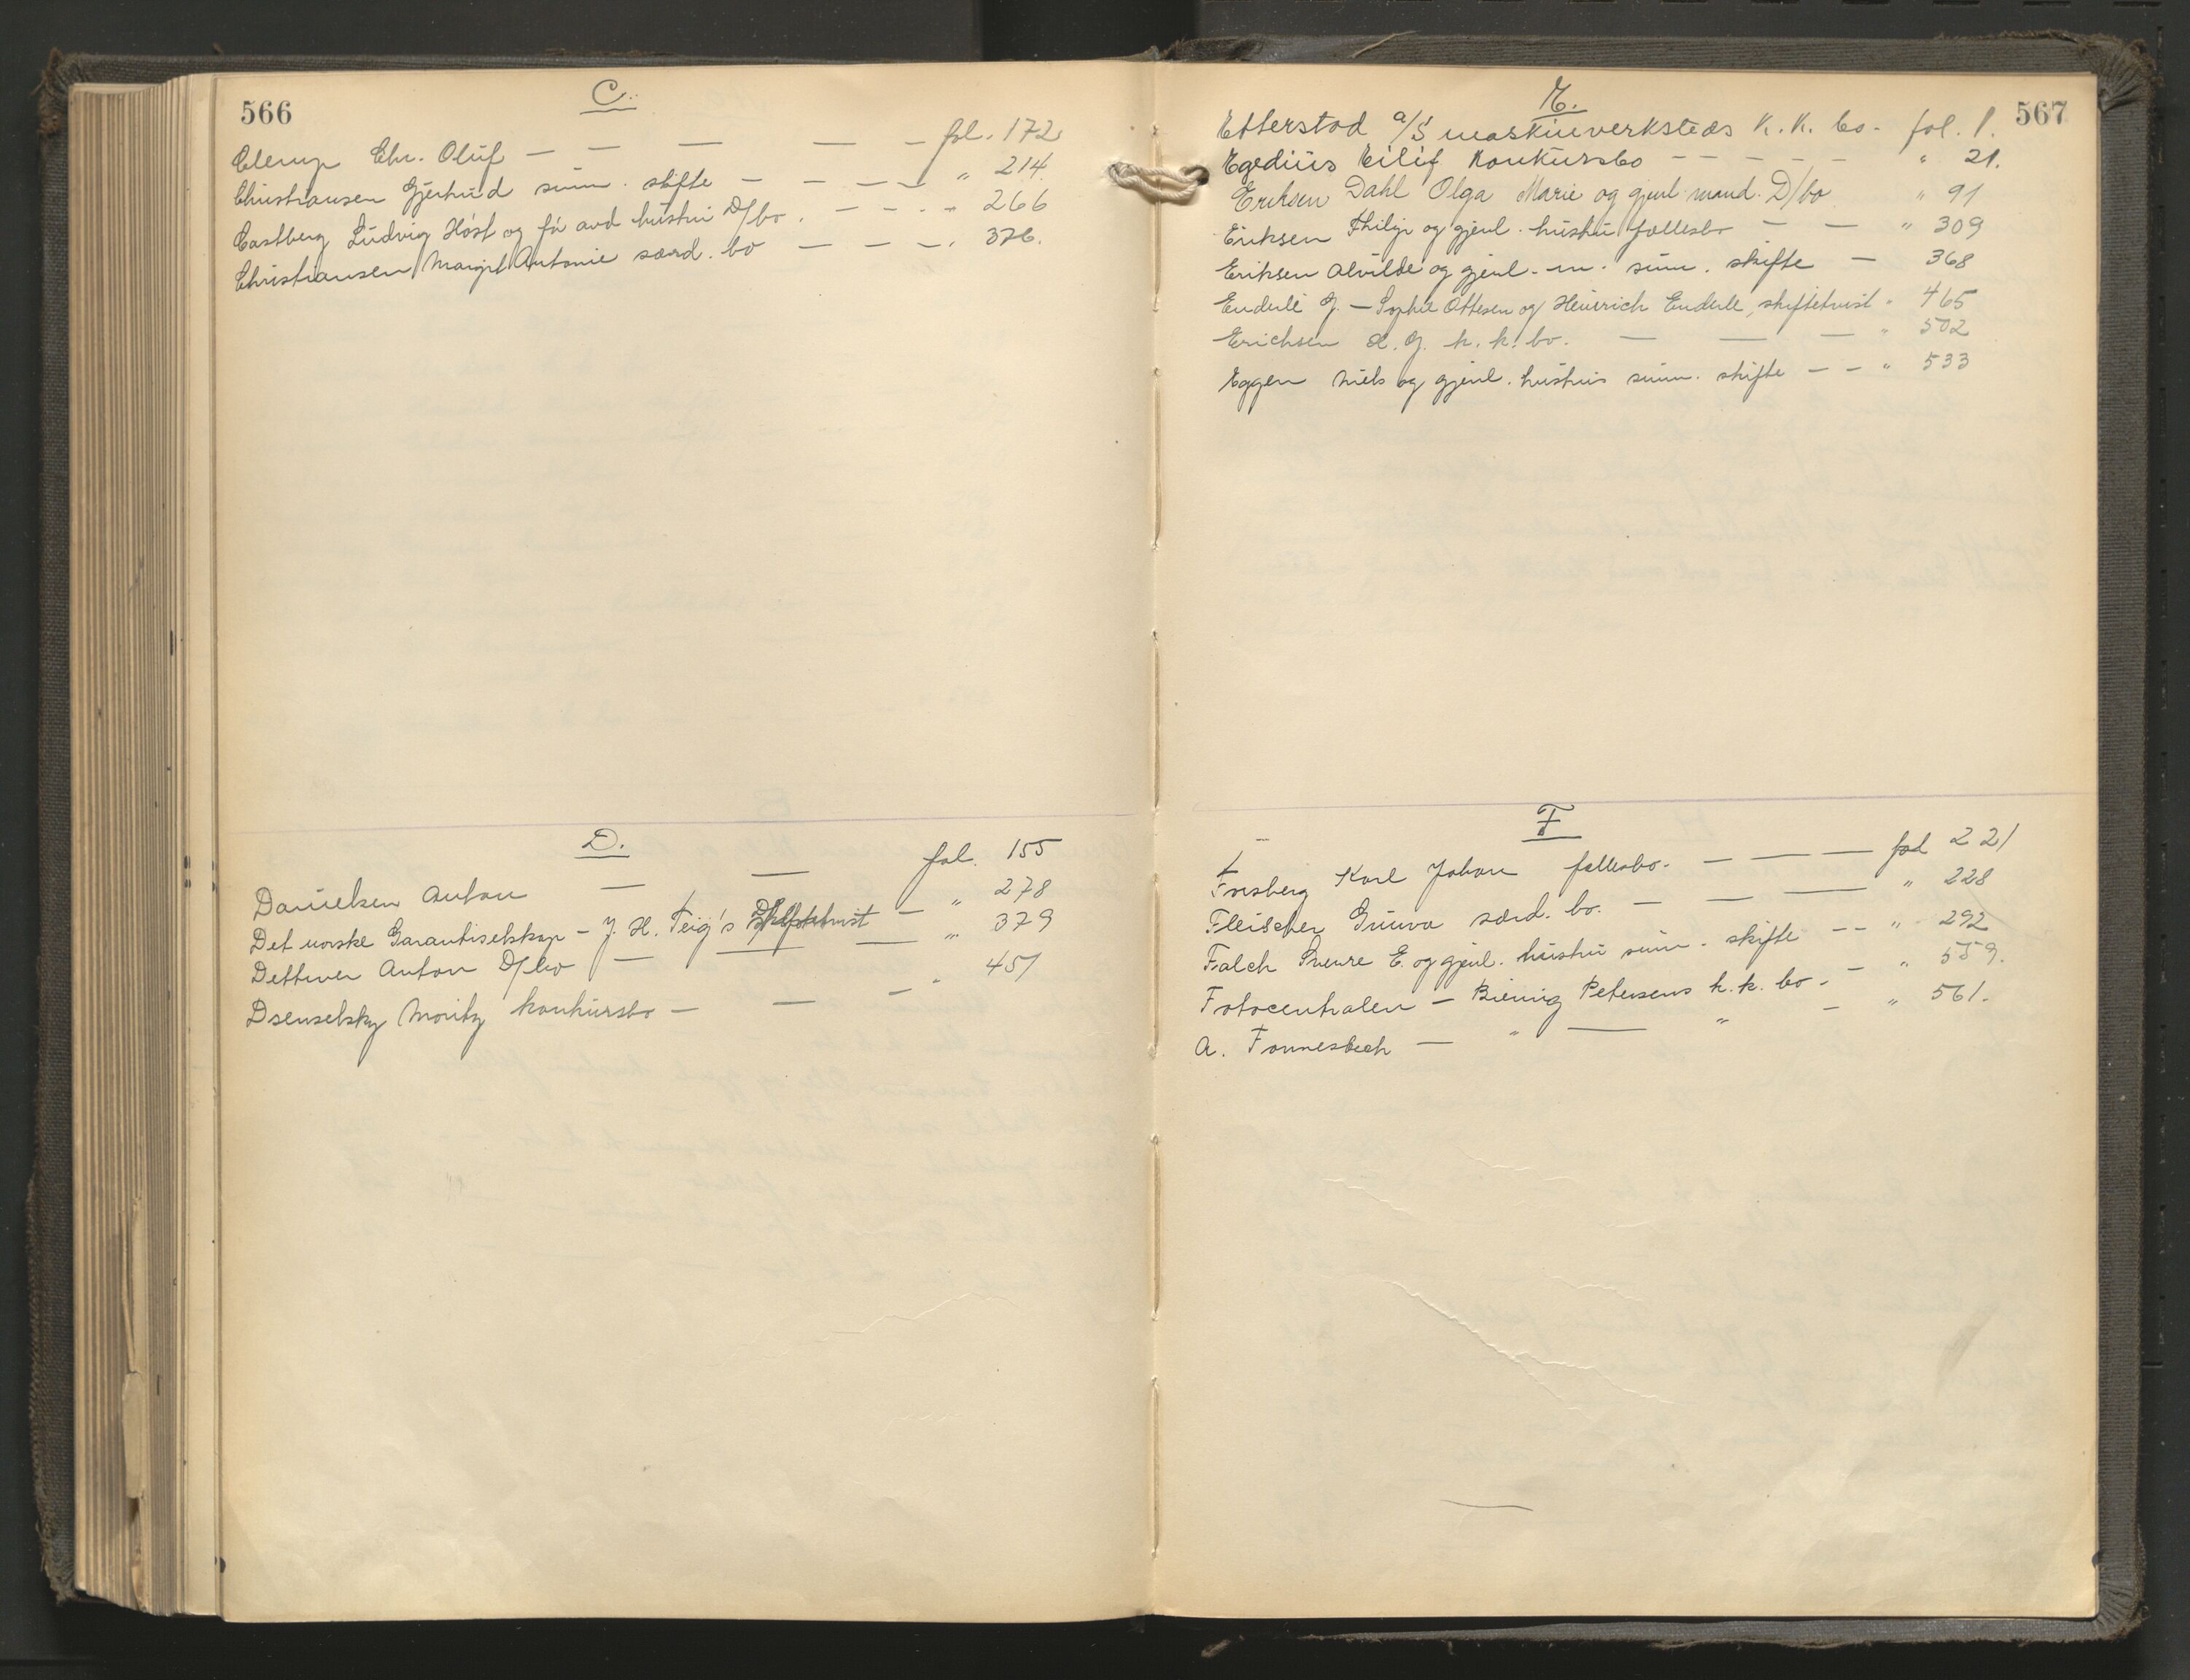 566
C.
Clerup Chr. Oluf — — — — — fol. 172
Christiansen Gjertrud summ. skifte — — — — " 214
Castberg Ludvig Høst og før avd hustru D/bo. — — - - " 266
Christiansen Margit Antonie særd. bo — — — " 376.
D.
Danielsen Anton — — fol. 155
Det norske Garantiselskap - J. H. Teig's skiftetvist — " 278
Dettmer Anton D/bo — — — " 379
Dsenselsky Moritz konkursbo — — — " 451
567
E.
Etterstad a/s maskinverksteds K. K. bo - fol. 1.
Egedius Eilif Konkursbo — — — — — " 21.
Eriksen Dahl Olga Marie og gjenl. mand. D/bo " 91
Eriksen Philip og gjenl. hustru fællesbo — — " 309
Eriksen Alvilde og gjenl. m. summ. skifte — 368
Enderle J. — Sophie Ottesen og Heinrich Enderle, skiftetvist - 465
Erichsen H. J. k. k. bo. — — — " 502
Eggen Niels og gjenl. hustrus summ. skifte — — " 533
F
Forsberg Karl Johan fællesbo. — — — fol 221
Fleischer Gunva særd. bo. — — — " 228
Falch Sverre E. og gjenl. hustru summ. skifte — — " 292
Fotocentralen — Biering Petersens k. k. bo. — " 559.
A. Fonnesbech — " — " — " 561.